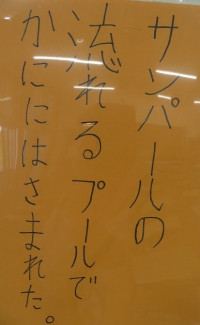 サンパールの
流れるプールで
かににはさまれた。